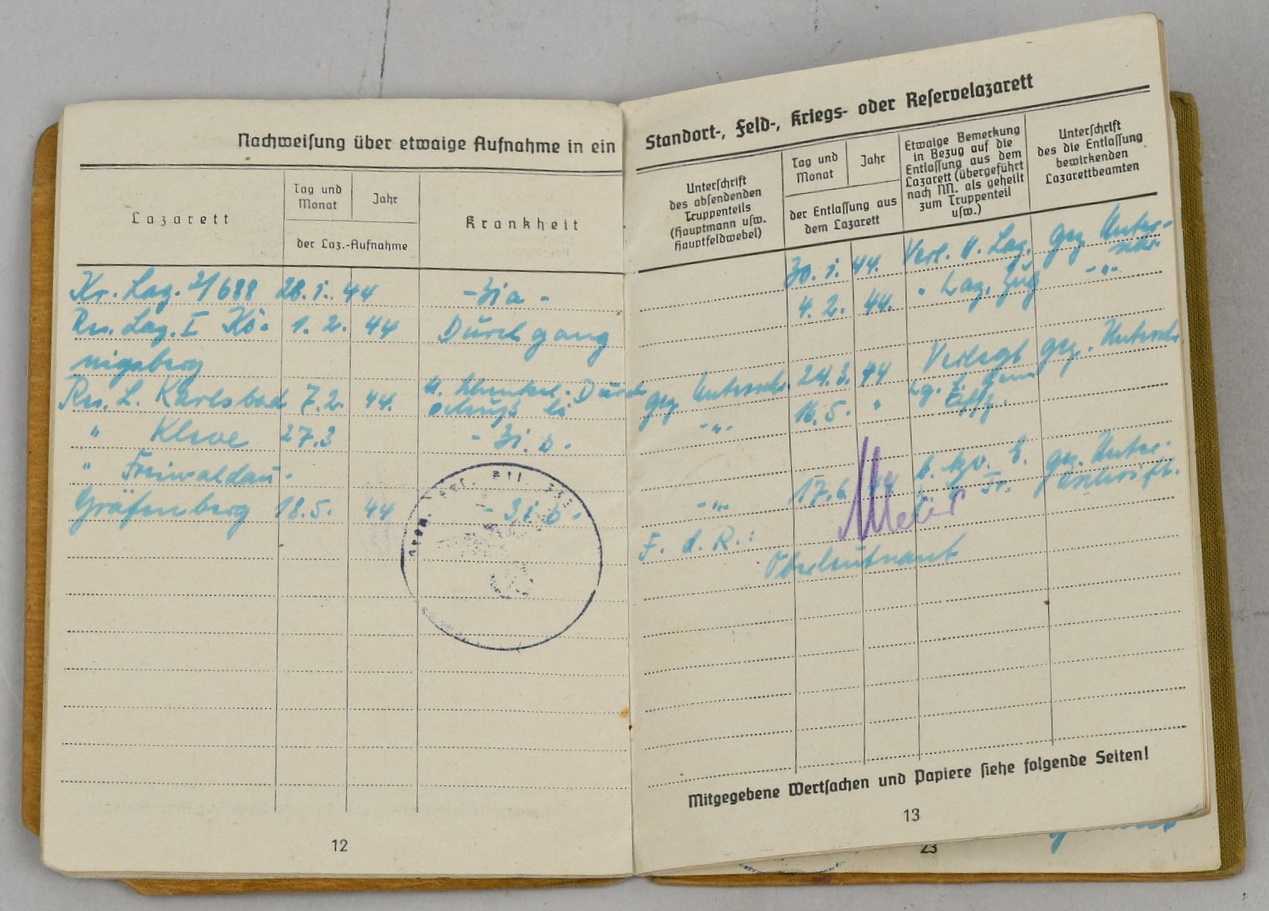 Nachweisung über etwaige Aufnahme in ein
Lazarett
Tag und Monat
Jahr
der Laz.-Aufnahme
Krankheit
Kr. Laz. 2/688 28.1. 44
Res. Laz. I Kö- 1. 2. 44 Durchgang
nigsberg
Res. L. Karlsbad 7.2. 44
" Kleve 27.3
" Freiwaldau-
Gräfenberg 18.5. 44
12
Standort-, Feld-, Kriegs- oder Reservelazarett
Unterschrift
des absendenden
Truppenteils
(Hauptmann usw.
Hauptfeldwebel)
Tag und Monat
Jahr
der Entlassung aus
dem Lazarett
Etwaige Bemerkung
in Bezug auf die
Entlassung aus dem
Lazarett (übergeführt
nach NN. als geheilt
zum Truppenteil
usw.)
Unterschrift
des die Entlassung
bewirkenden
Lazarettbeamten
30. 1. 44. Verl. Laz. gez. Unter-
schr.
4. 2. 44. " Laz. Zug -"-
gez. Unterschr. 24.3. 44 Verlegt gez. Unterschr.
-"- 16.5. "
-"- 17.6 44 gez. Unter-
schrift.
F. d. R.:
Meier
Oberleutnant
Mitgegebene Wertsachen und Papiere siehe folgende Seiten!
13
23